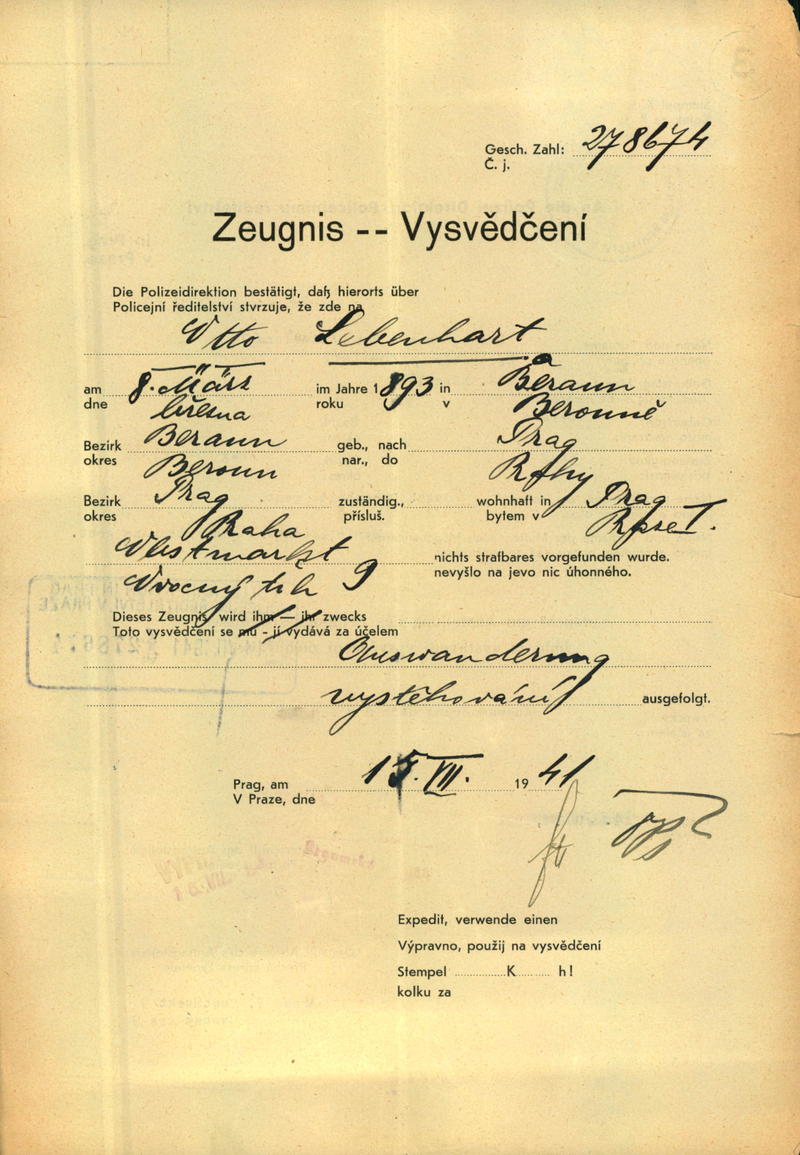 Gesch. Zahl: 278674
Č. j.
Zeugnis -- Vysvědčení
Die Polizeidirektion bestätigt, daß hierorts über
Policejní ředitelství stvrzuje, že zde na
Otto Lebenhart
am 8. März im Jahre 1893 in Beraun
dne března roku v Berouně
Bezirk Beraun geb., nach Prag
okres Beroun nar., do Prahy
Bezirk Prag zuständig., wohnhaft in Prag
okres Praha přísluš. bytem v Praze I.
Obstmarkt nichts strafbares vorgefunden wurde.
Ovocný trh 9 nevyšlo na jevo nic úhonného.
Dieses Zeugnis wird ihm — ihr zwecks
Toto vysvědčení se mu - jí vydává za účelem
Auswanderung
vystěhování ausgefolgt.
Prag, am 15. VII. 1941
V Praze, dne
Expedit, verwende einen
Výpravno, použij na vysvědčení
Stempel K h!
kolku za